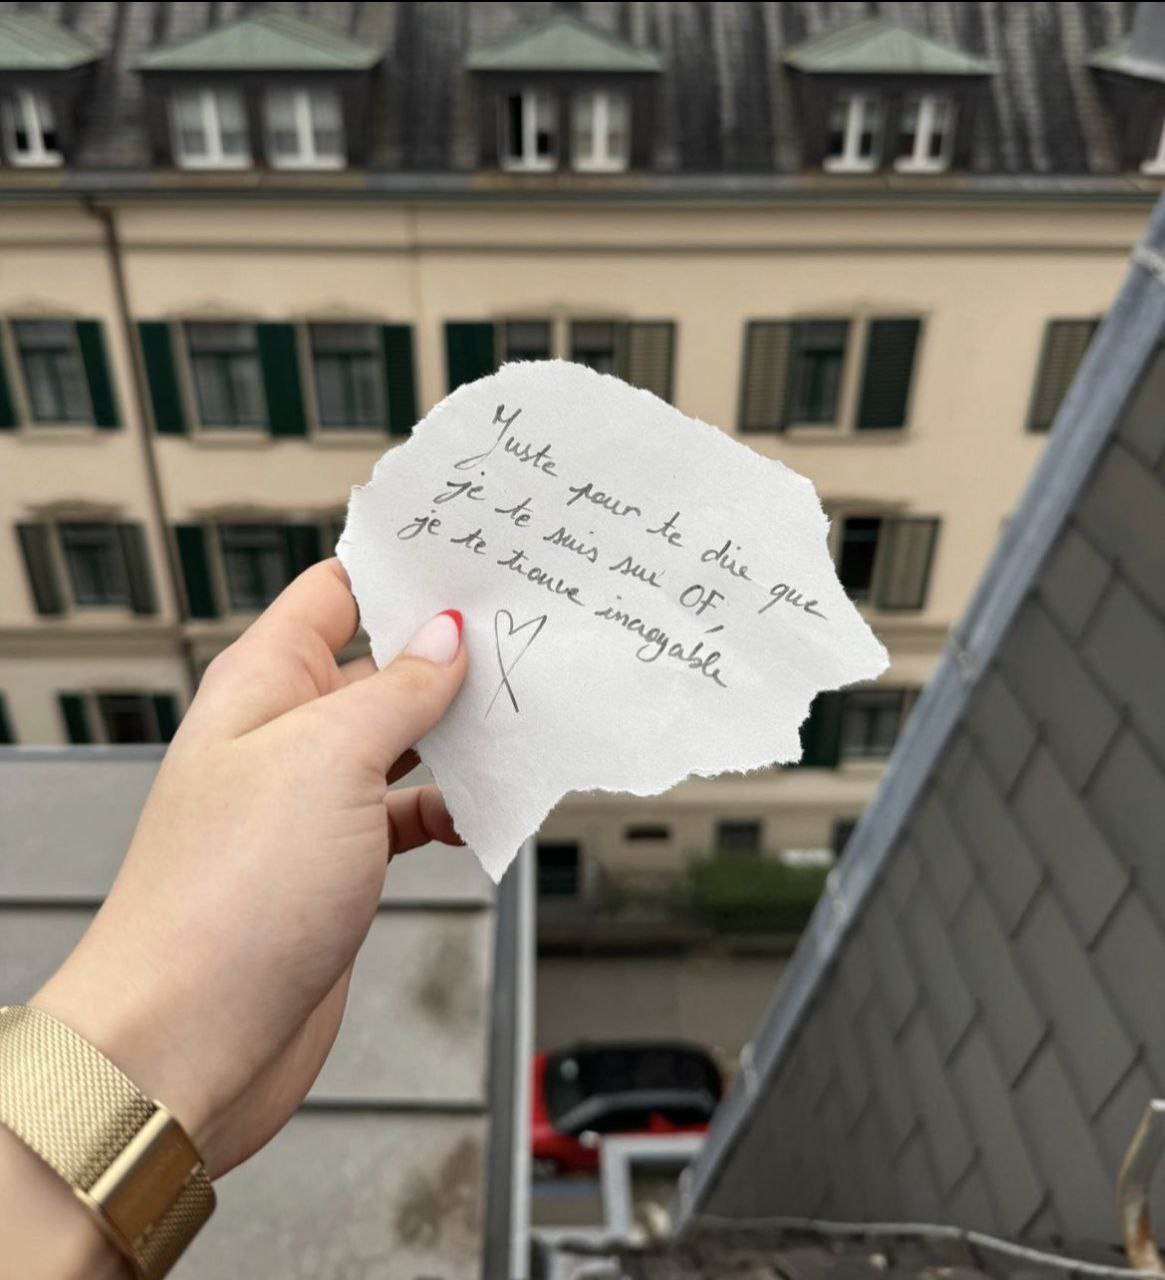 Juste pour te dire que
je te suis sur OF,
je te trouve incroyable